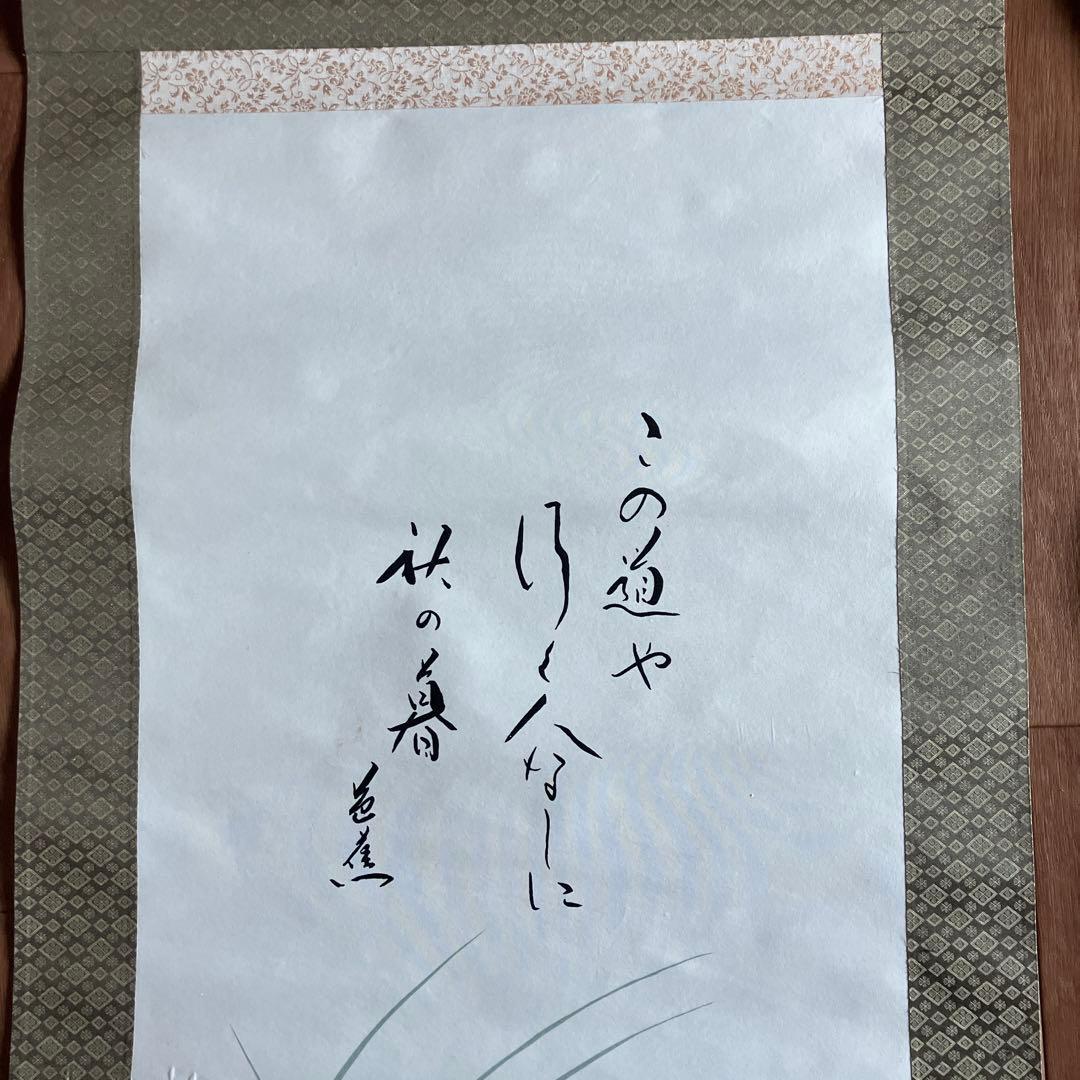 この道や
行く人なしに
秋の暮
芭蕉